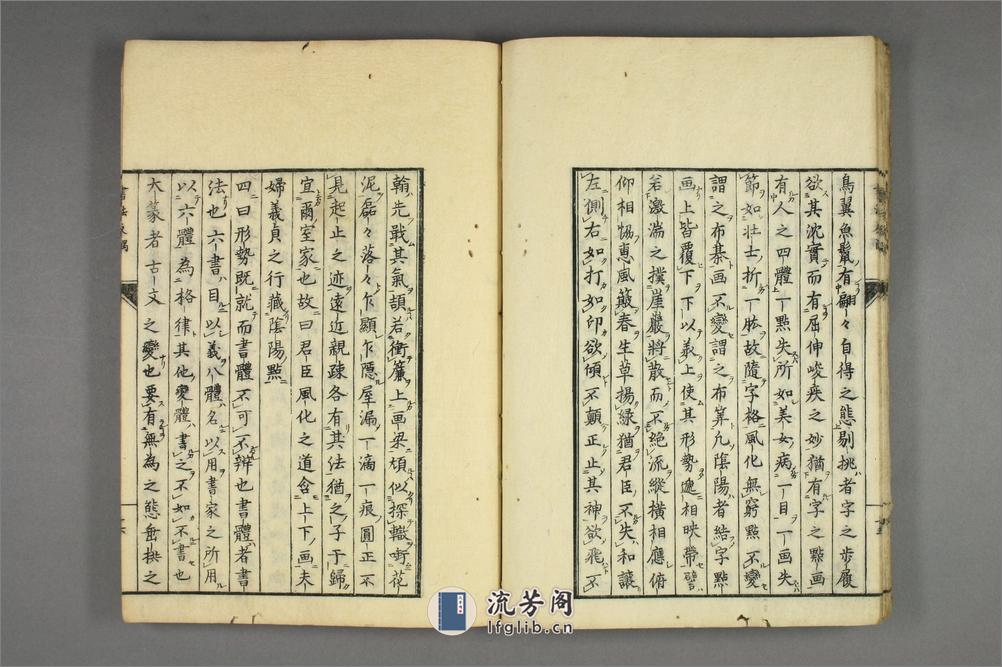 鳥翼魚鬣有翩々自得之態剔挑者字之步履
欲其沈實而有屈伸峻疾之妙猶有字之點畫
有人之四體一點失所如美女病一目一畫失
節如壯士折一肱故隨字格風化無窮點不變
謂之布棊画不變謂之布筭凡陰陽者結字
画上皆覆下下以美上使其形勢遞相映帶譬
若激湍之撲崖巖將散而不絶流縱橫相應俯
仰相恊惠風簸春生草揚緑猶君臣不失和讓
左側右如打如印欲傾不顛正止其神欲飛不
翰先戢其氣頡若衝簾上画梁頏似探轍啣花
泥磊々落々乍顯乍隱屋漏一滴一痕圓正不
見起止之迹遠近親疎各有其法猶之子于歸
宜爾室家也故曰君臣風化之道含上下画夫
婦義貞之行藏陰陽點
四曰形勢既就而書體不可不辨也書體者書
法也六書目以義八體名以用書家之所用
以六體為格律其他變體書之不如不書也
大篆者古文之變也要有無為之態垂拱之
流芳阁
lfglib.cn